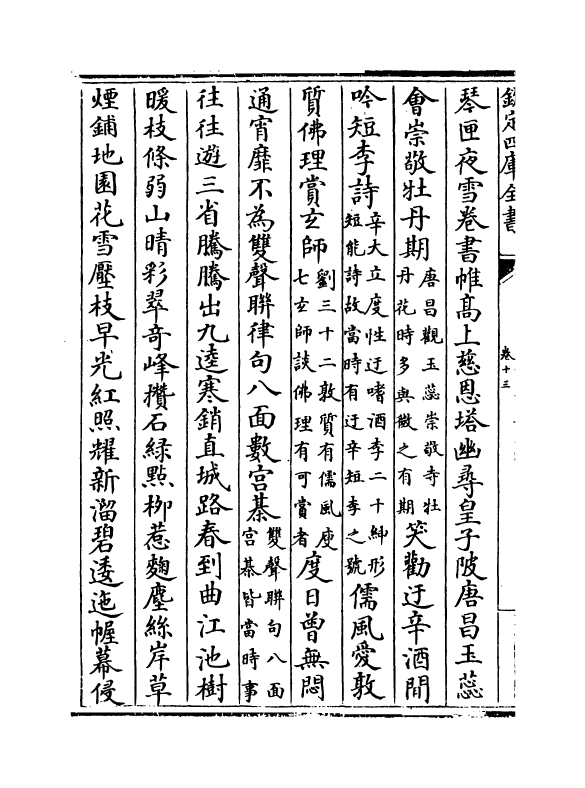 欽定四庫全書
卷十三
琴匣夜雪卷書帷高上慈恩塔幽尋皇子陂唐昌玉蕊
會崇敬牡丹期唐昌觀玉蕊崇敬寺牡丹花時多與微之有期笑勸迂辛酒閒
吟短李詩辛大立度性迂嗜酒李二十紳形短能詩故當時有迂辛短李之號儒風愛敦
質佛理賞玄師劉三十二敦質有儒風庾七玄師談佛理有可賞者度日曾無悶
通宵靡不為雙聲聯律句八面數宫棊雙聲聯句八面宫棊皆當時事
往往遊三省騰騰出九逵寒銷直城路春到曲江池樹
暖枝條弱山晴彩翠奇峰攢石綠點栁惹麴塵絲岸草
煙鋪地園花雪壓枝早光紅照耀新溜碧逶迤幄幕侵